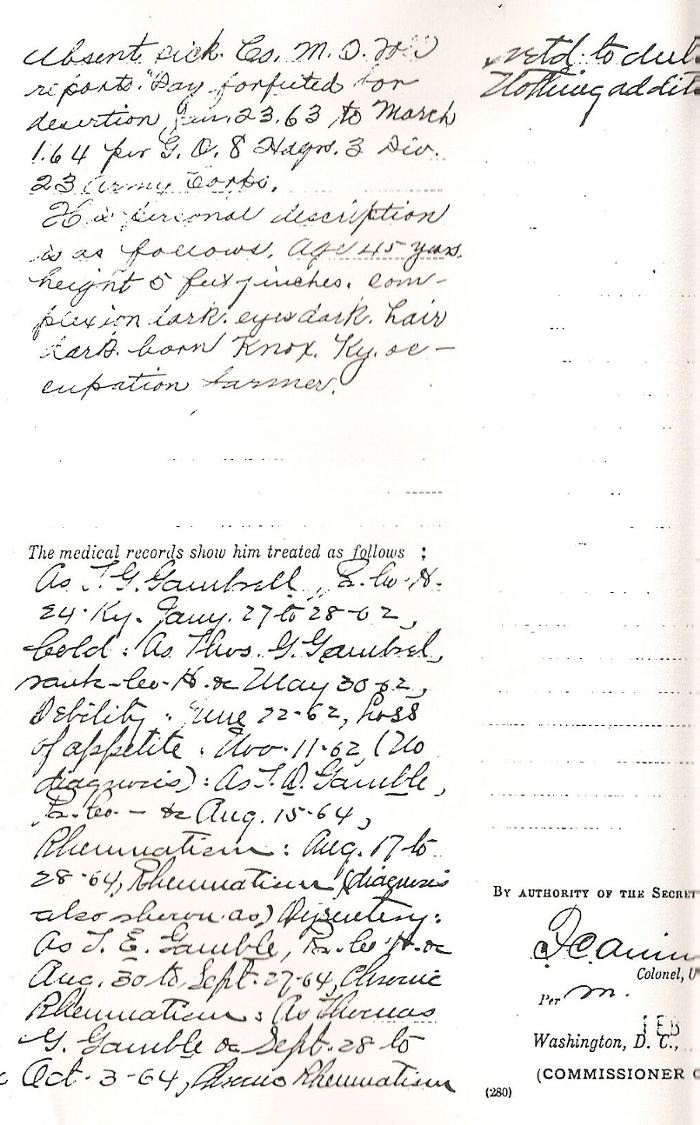 Absent sick. Co. M. O.
reports. "Pay forfeited for
desertion Jan 23.63 to March
1.64 per G. O. 8 Hdqrs. 3 Div.
23 Army Corps.
His personal description
is as follows. Age 45 years
height 5 feet 7 inches. com-
plexion dark. eyes dark. hair
dark. born Knox. Ky. oc-
cupation farmer.
The medical records show him treated as follows :
As T. G. Gambrell, P. Co. H.
24. Ky. Jany. 27 to 28-62,
Cold: As Thos. G. Gambrel,
rank- Co. H. &c May 30 62,
Debility. June 22-62, Loss
of appetite. Nov. 11-62, (No
diagnosis): As T. D. Gamble,
P. Co. - &c Aug. 15-64,
Rheumatism: Aug. 17 to
28-64, Rheumatism (diagnosis
also shown as) Dysentery:
As T. E. Gamble, P. Co. H. &c
Aug. 30 to Sept. 27-64, Chronic
Rheumatism: As Thomas
G. Gamble &c Sept. 28 to
Oct. 3-64, Chronic Rheumatism
retd. to
Nothing addit
BY AUTHORITY OF THE SECRET
Colonel, U
Per M.
FEB
Washington, D. C.,
(COMMISSIONER O
(280)